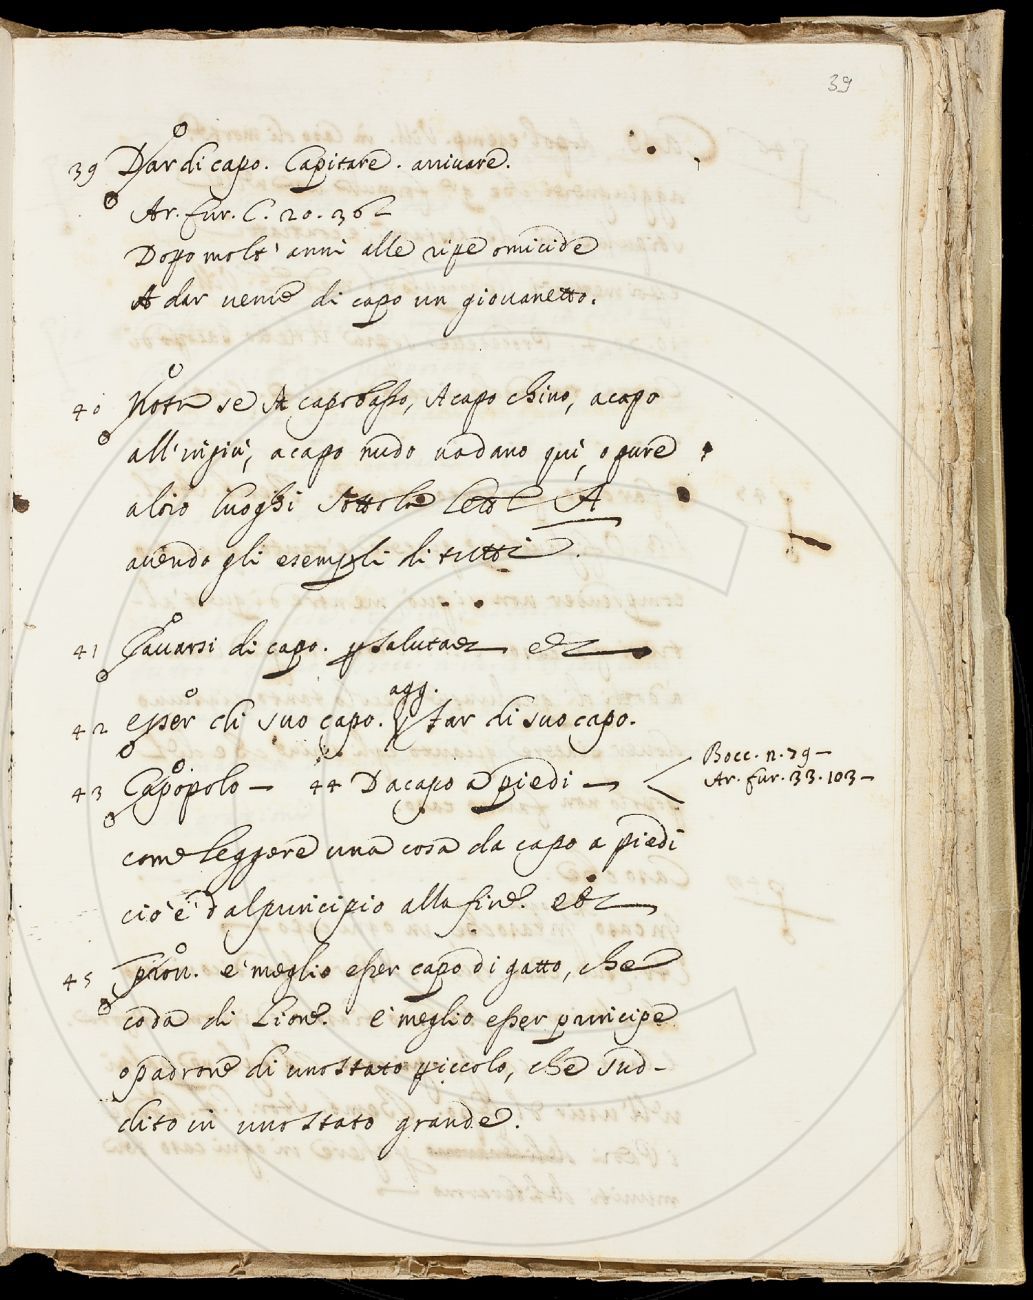 39
39 Dar di capo. Capitare. arriuare.
Ar. fur. C. 20. 36
Dopo molt' anni alle ripe omicide
A dar uenne di capo un giouanetto.
40 Nota se A capo basso, A capo chino, a capo
all'ingiù, a capo nudo uadano qui, o pure
altro luoghi sotto la A
auendo gli esempli di tutti.
41 Cauarsi di capo.
agg.
42 esser di suo capo. far di suo capo.
Bocc. n. 79 —
43 Capopolo — 44 Da capo a piedi — Ar. fur. 33. 103 —
come leggere una cosa da capo a piedi
cio è dal principio alla fine.
45 prou. e' meglio esser capo di gatto, che
coda di Lione. e' meglio esser principe
o padrone di uno stato piccolo, che sud-
dito in uno stato grande.